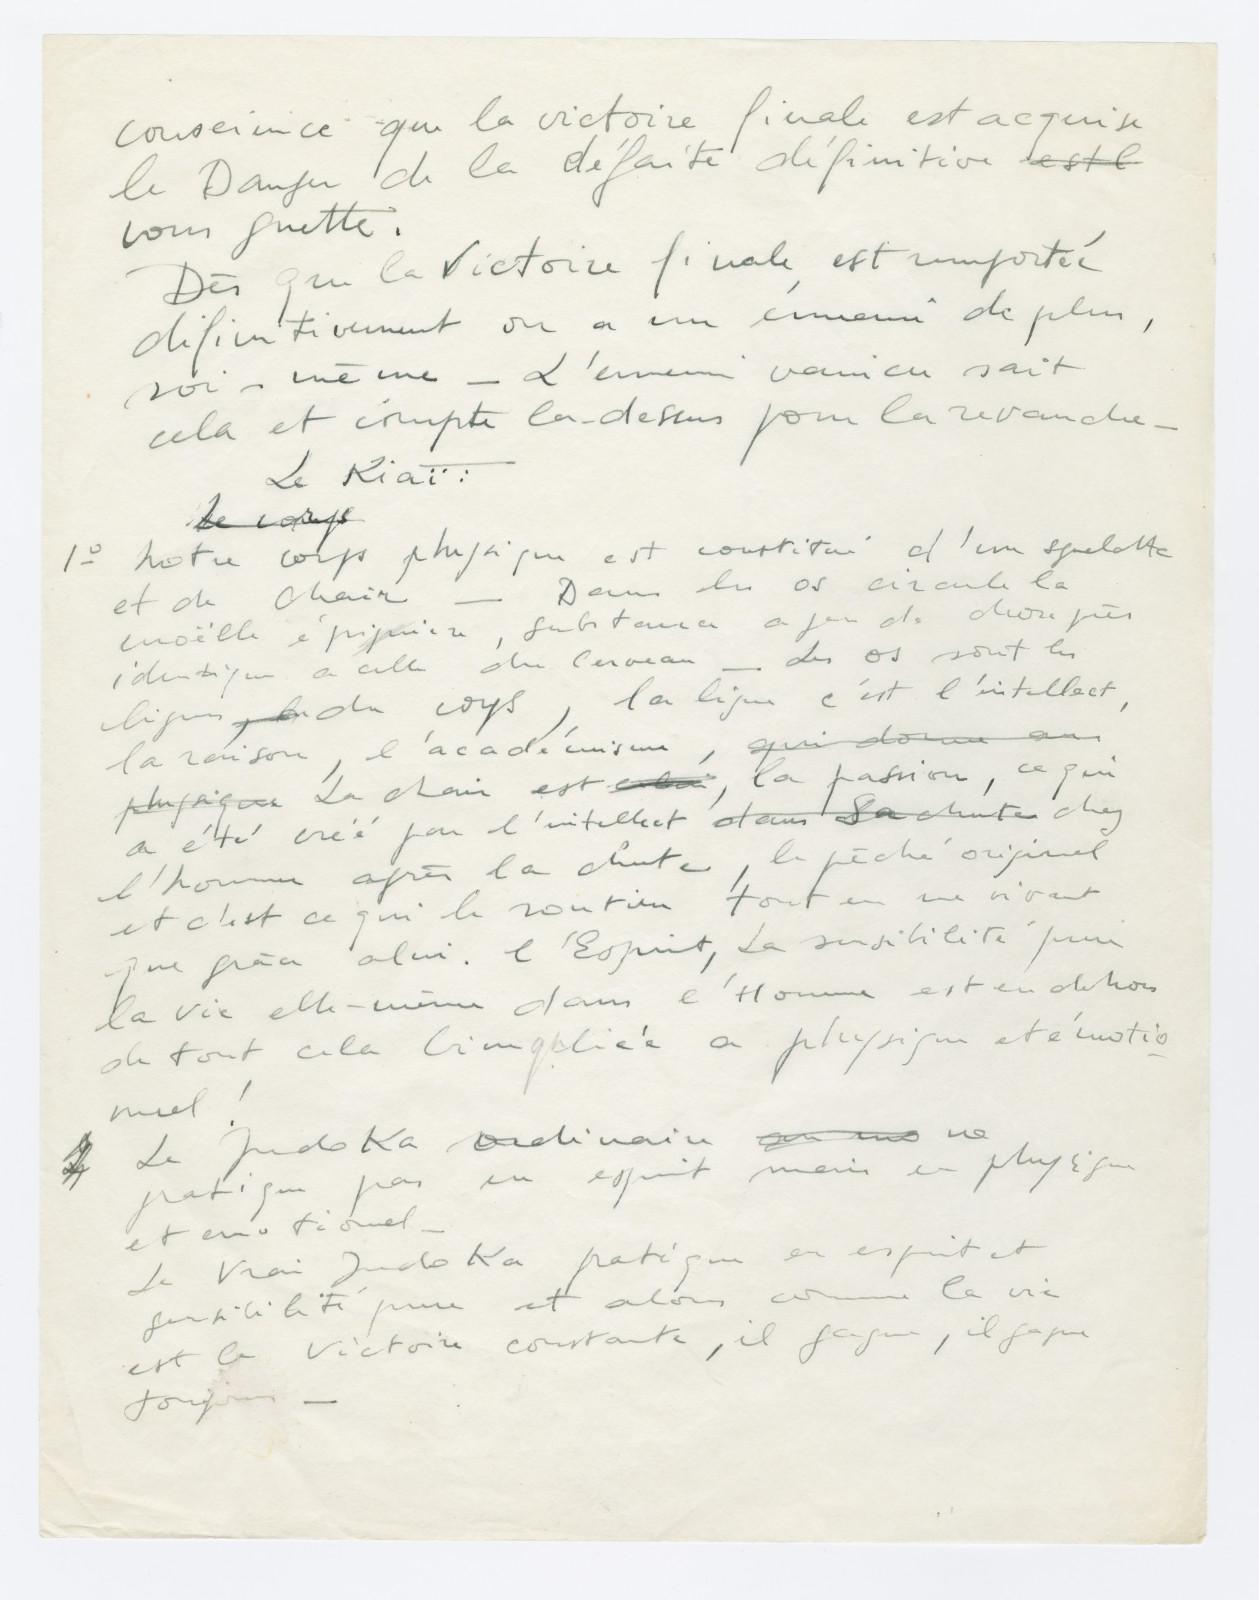 conscience que la victoire finale est acquise
le Danger de la défaite définitive est l
vous guette.
Dès que la Victoire finale est remportée
définitivement on a un énnemi de plus,
soi-même — L'ennemi vaincu sait
cela et compte la-dessus pour la revanche —
Le Kiaï :
Le corps
1º Notre corps physique est constitué d'un squelette
et de Chair — Dans les os circule la
moëlle épinière, substance a peu de chose près
identique a celle du Cerveau — Les os sont les
lignes, du corps, la ligne c'est l'intellect,
la raison, l'académisme, qui donne au
physique La chair est, la passion, ce qui
a été créé par l'intellect dans Sa chute chez
l'homme après la chute, le pêché originel
et c'est ce qui le soutien tout en ne vivant
que grâce a lui. l'Esprit, La sensibilité pure
la vie elle-même dans l'Homme est en dehors
de tout cela a physique et émotio
nnel !
2 Le JudoKa ordinaire ne
pratique pas en esprit mais en physique
et emotionel —
Le Vrai JudoKa pratique en esprit et
sensibilité pure et alors comme la vie
est la Victoire constante, il gagne, il gagne
toujours —